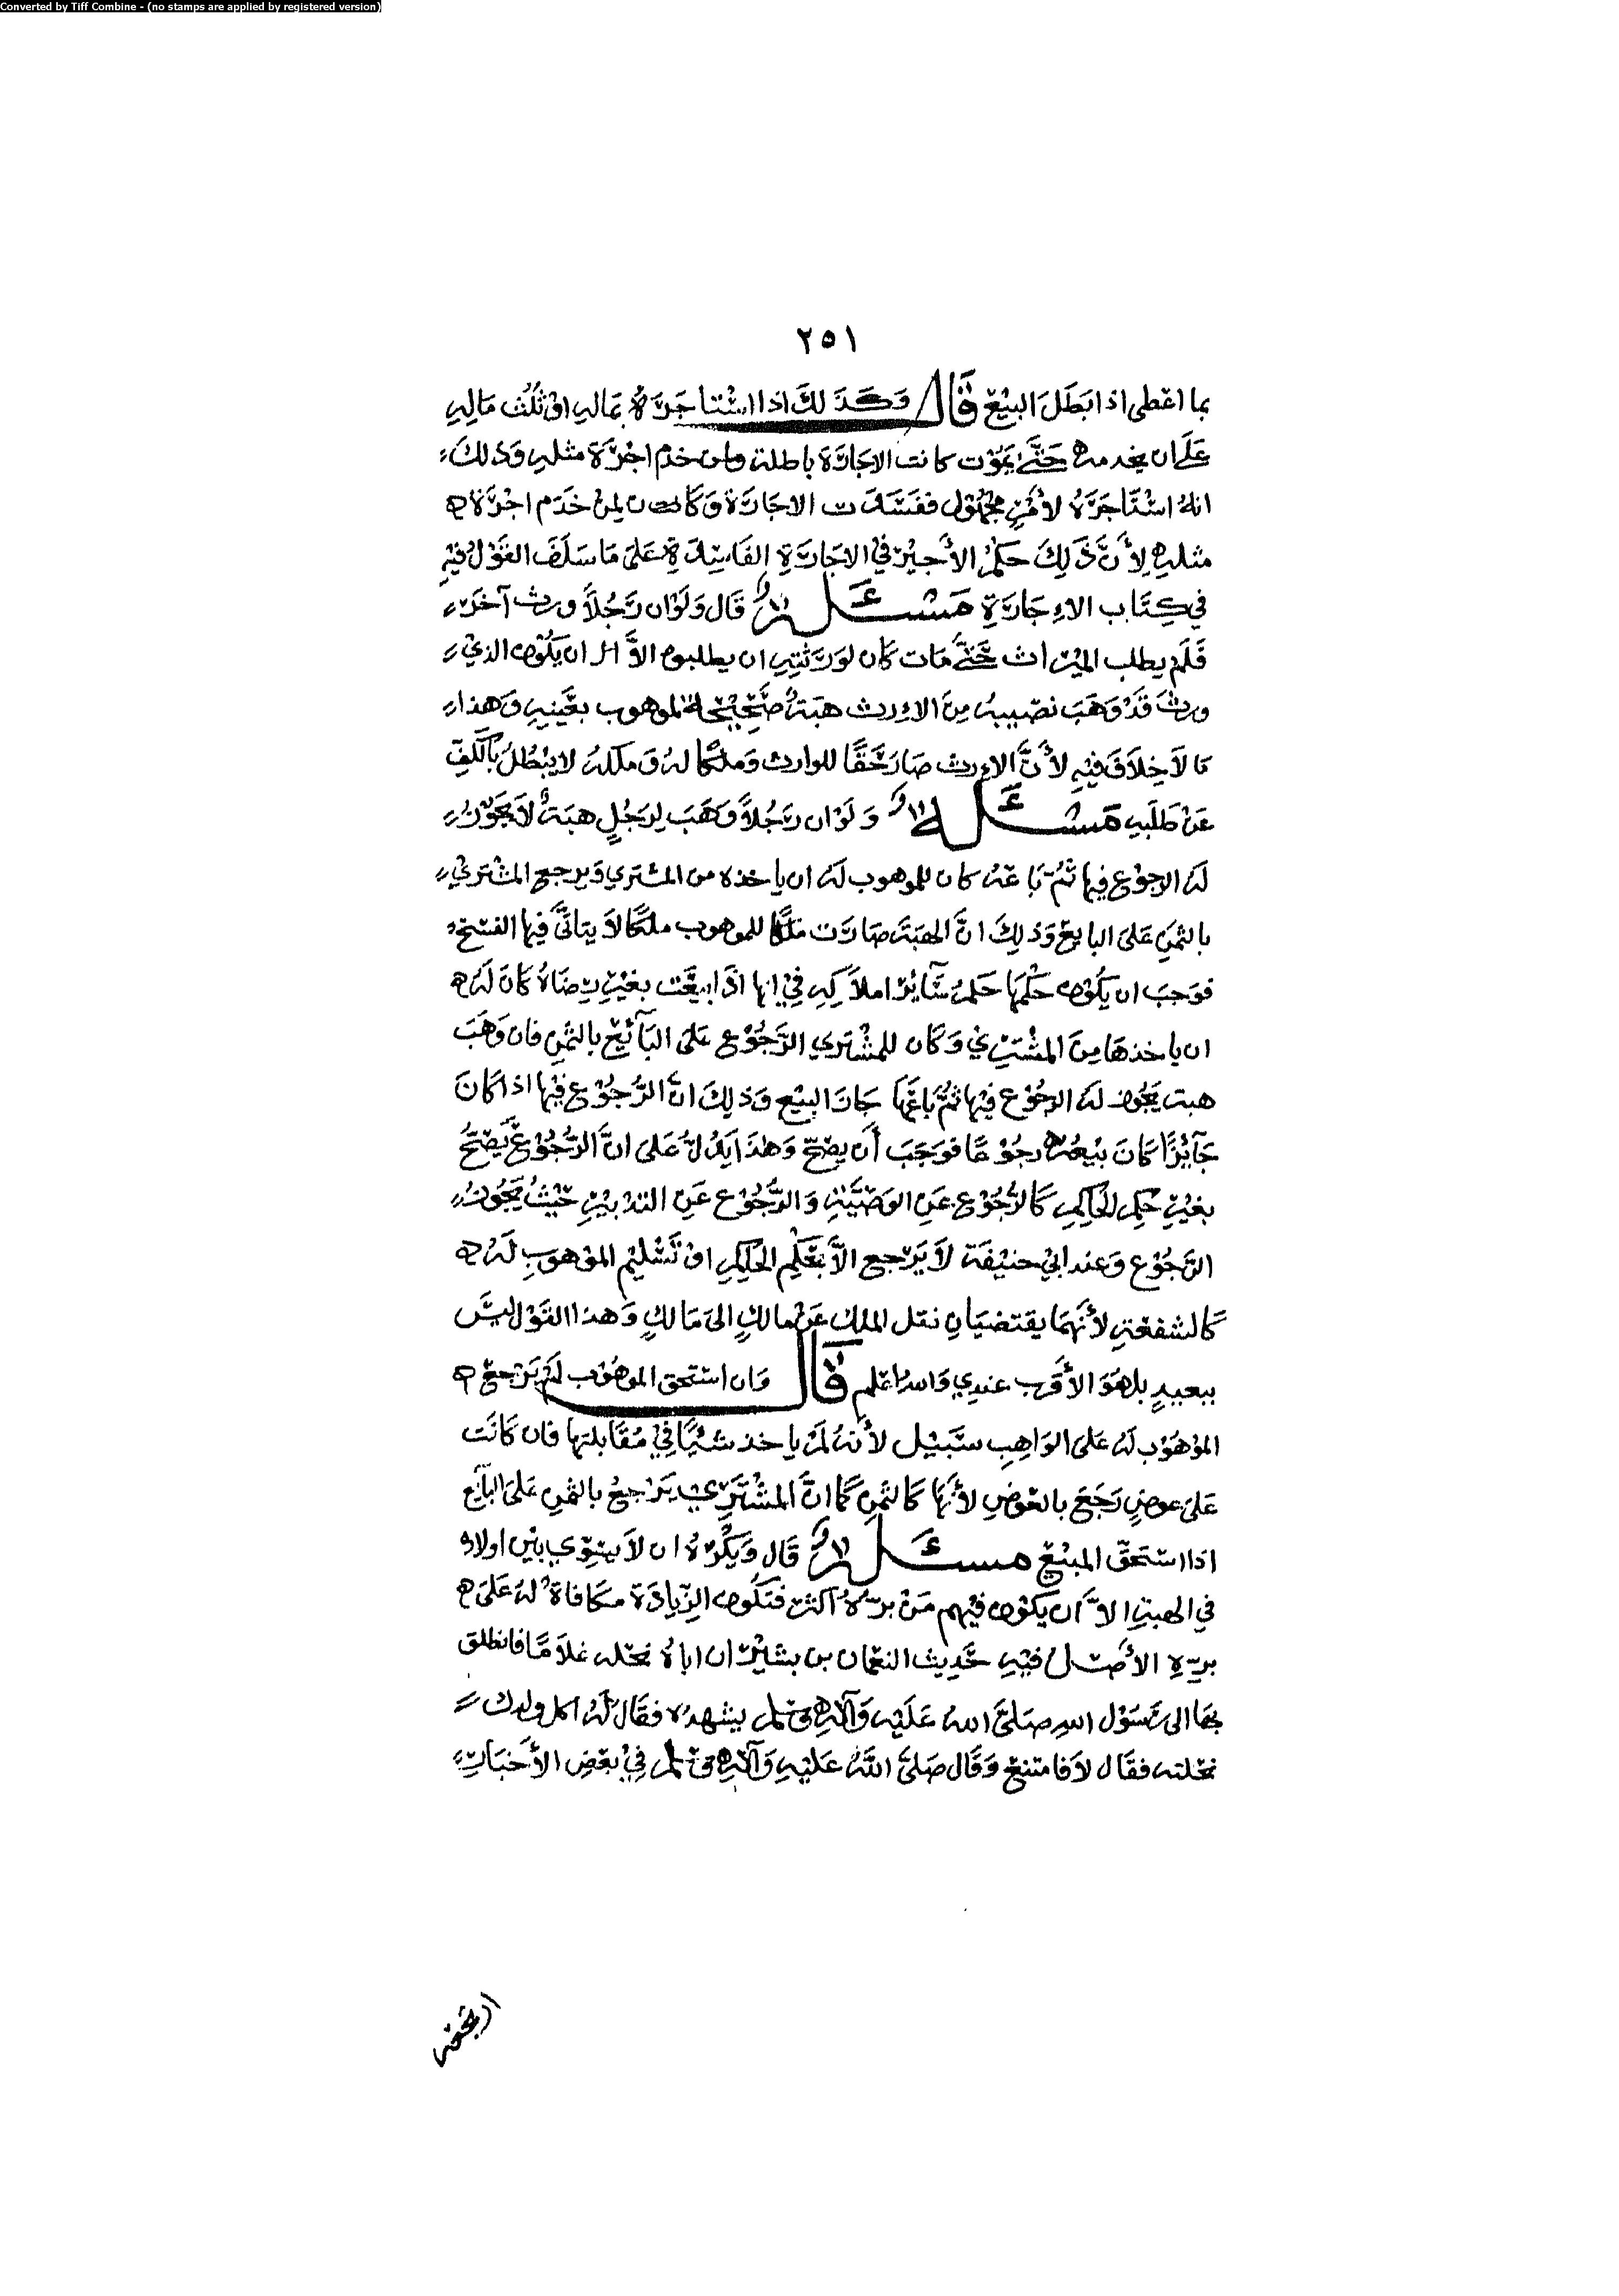 Converted by Tiff Combine - (no stamps are applied by registered version)
٢٥١
بما اعطى اذا بطل البيع قال وكذلك اذا استاجره بماله او ثلث ماله
على ان يخدمه حتى يموت كانت الاجارة باطلة ولمن خدم اجرة مثله وذلك
انه استاجره لأمر مجهول ففسدت الاجارة وكان لمن خدم اجرة
مثله لأن ذلك حكم الأجير في الاجارة الفاسدة على ما سلف القول فيه
في كتاب الاجارة مسئلة قال ولو ان رجلا ورث آخر
فلم يطلب الميراث حتى مات كان لورثته ان يطلبوه الا ان يكون الذي
ورث قد وهب نصيبه من الارث هبة صحيحة لموهوب بعينه وهذا
مما لا خلاف فيه لأن الارث صار حقا للوارث وملكا له وملكه لا يبطل بالكف
عن طلبه مسئلة ولو ان رجلا وهب لرجل هبة لا يجوز
له الرجوع فيها ثم باعه كان للموهوب له ان ياخذه من المشتري ويرجع المشتري
بالثمن على البايع وذلك ان الهبة صارت ملكا للموهوب ملكا لا يتاتى فيها الفسخ
فوجب ان يكون حكمها حكم سآئر املاكه في انها اذا بيعت بغير رضاه كان له
ان ياخذها من المشتري وكان للمشتري الرجوع على البآئع بالثمن فان وهب
هبة يجوز له الرجوع فيها ثم باعها جاز البيع وذلك ان الرجوع فيها اذا كان
جآئزا كان بيعه رجوعا فوجب أن يصح وهذا يدل على ان الرجوع يصح
بغير حكم الحاكم كالرجوع عن الوصية والرجوع عن التدبير حيث يجوز
الرجوع وعند ابي حنيفة لا يرجع الا بحكم الحاكم او تسليم الموهوب له
كالشفعة لأنهما يقتضيان نقل الملك عن مالك الى مالك وهذا القول ليس
ببعيد بل هو الأقرب عندي والله اعلم قال وان استحق الموهوب لم يرجع
الموهوب له على الواهب سبيل لأنه لم ياخذ شيئا في مقابلتها فان كانت
على عوض رجع بالعوض لأنها كالثمن كما ان المشتري يرجع بالثمن على البآئع
اذا استحق المبيع مسئلة قال ويكره ان لا يسوي بين اولاده
في الهبة الا ان يكون فيهم من بره اكثر فتكون الزيادة مكافاة له على
بره الأصل فيه حديث النعمان بن بشير ان اباه نحله غلاما فانطلق
بها الى رسول الله صلى الله عليه وآله وسلم يشهده فقال له اكل ولدك
نحلته فقال لا فامتنع وقال صلى الله عليه وآله وسلم في بعض الأخبار